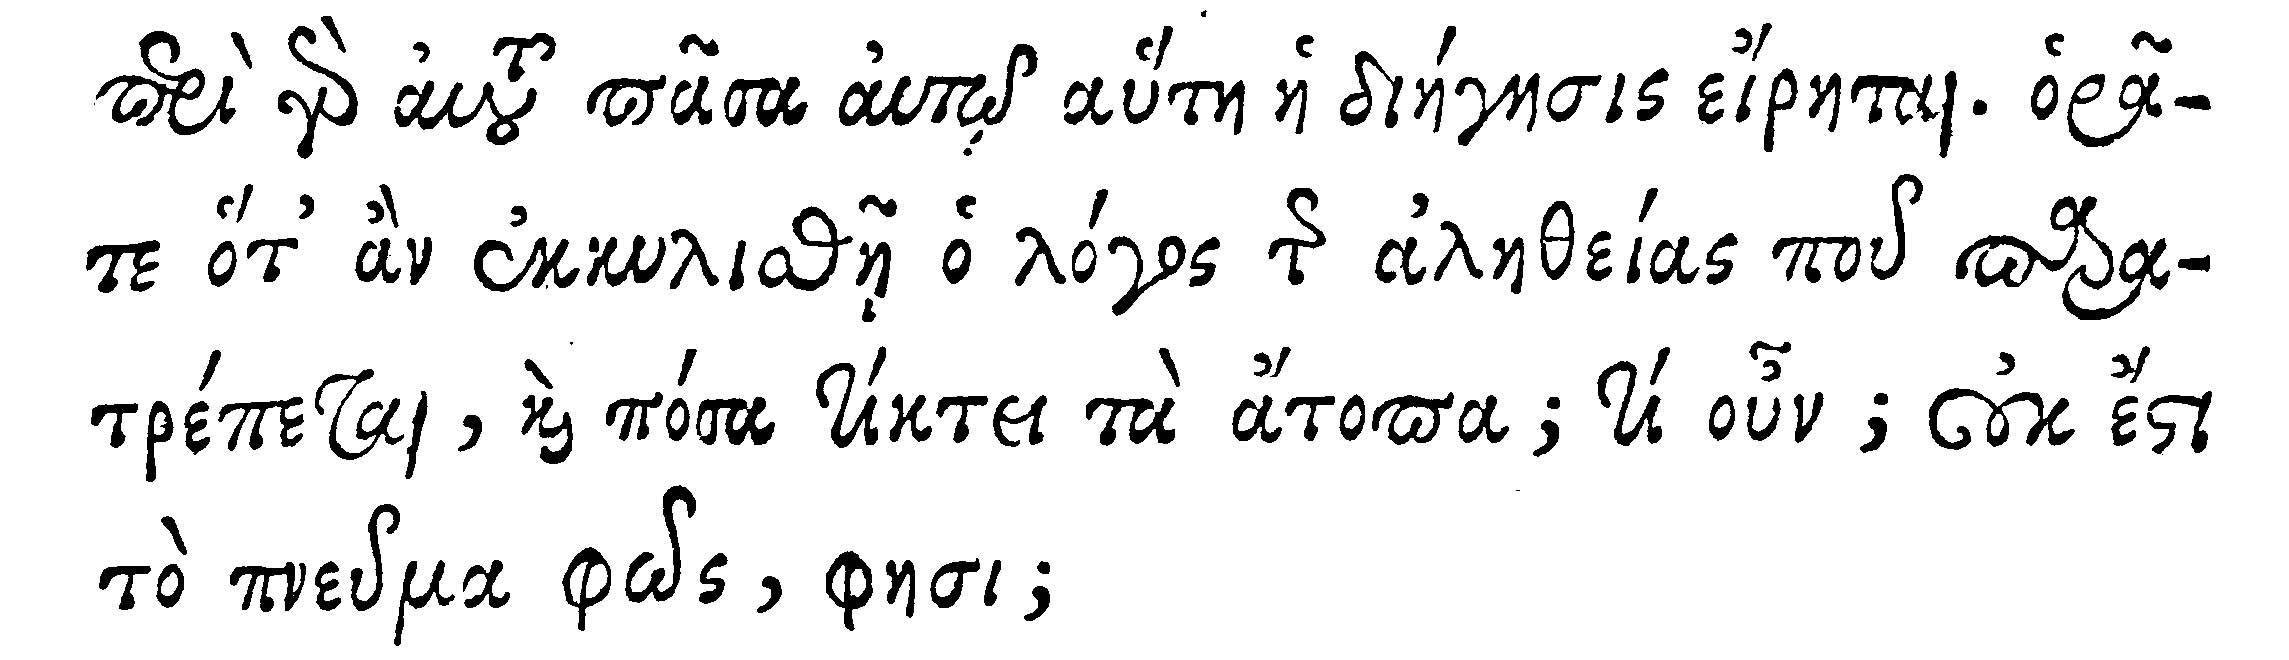 περὶ γὰρ ἀυτοῦ πᾶσα ἀυτῷ αὕτη ἡ διήγησις εἴρηται. ὁρᾶ-
τε ὅτ' ἂν ἐκκυλισθῇ ὁ λόγος τῆς ἀληθείας ποῦ παρα-
τρέπεται, καὶ πόσα τίκτει τὰ ἄτοπα; τί οὖν; οὐκ ἔστι
τὸ πνεῦμα φῶς, φησι;